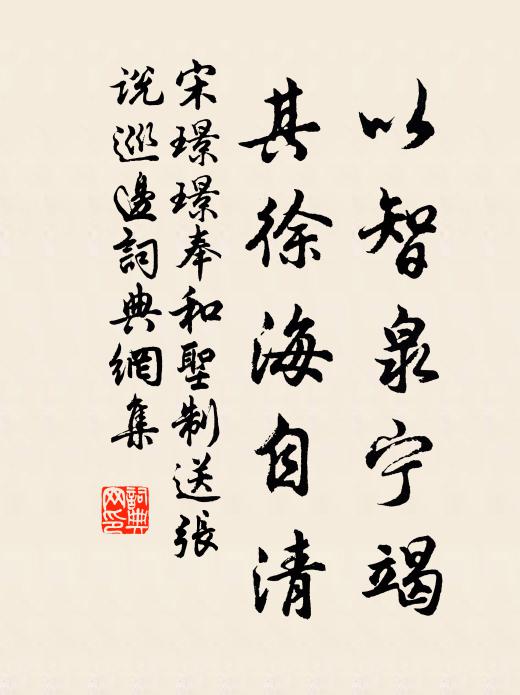 以智泉宁竭
其徐海自清
宋璟璟奉和聖制送張
説巡邉詞典網集
詞典
网印